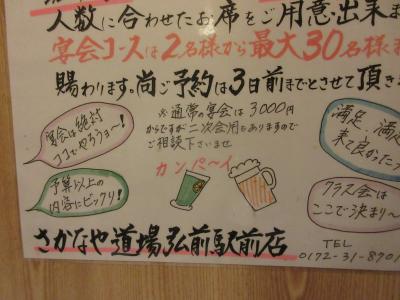 人数に合わせたお席をご用意出来ま
宴会コースは2名様から最大30名様ま
賜わります。尚ご予約は3日前までとさせて頂き
※通常の宴会は3000円
からですが二次会用もありますので
ご相談下さいませ
宴会は絶対
ココでやろうョー!
満足、満足
来て良かった
カンパ〜イ
予算以上の
内容にビックリ!
クラス会は
ここで決まり〜
さかなや道場弘前駅前店
TEL
0172-31-8701